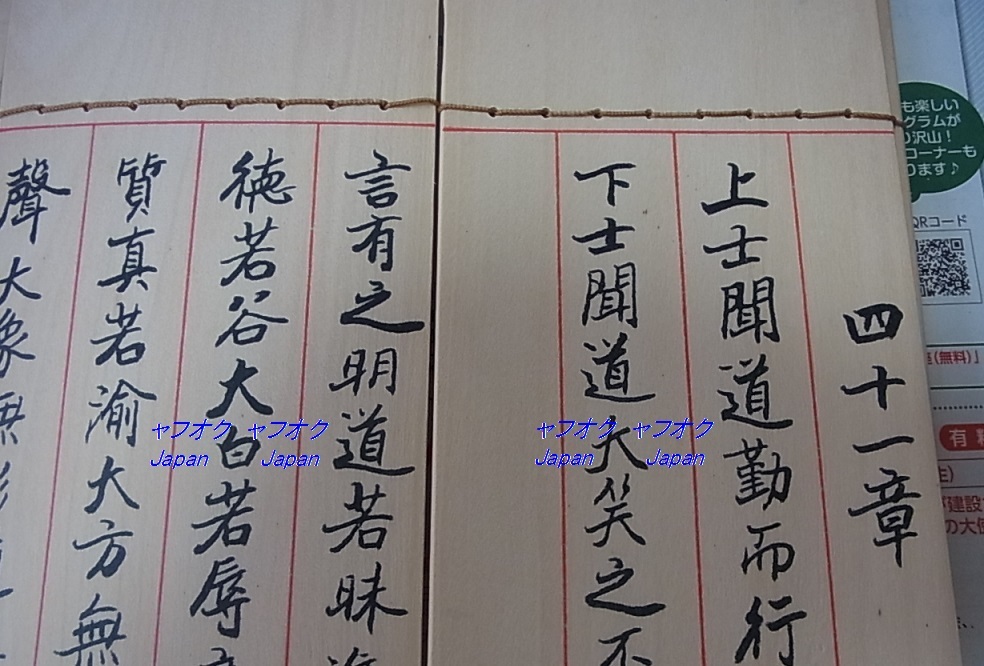 四十一章
上士聞道勤而行
下士聞道大笑之不
言有之明道若昧進
德若谷大白若辱
質真若渝大方無
聲大象無形
ヤフオク ヤフオク
Japan Japan
ヤフオク ヤフオク
Japan Japan
も楽しい
グラムが
沢山!
コーナーも
ります♪
QRコード
(無料)」
有料
建設
の大